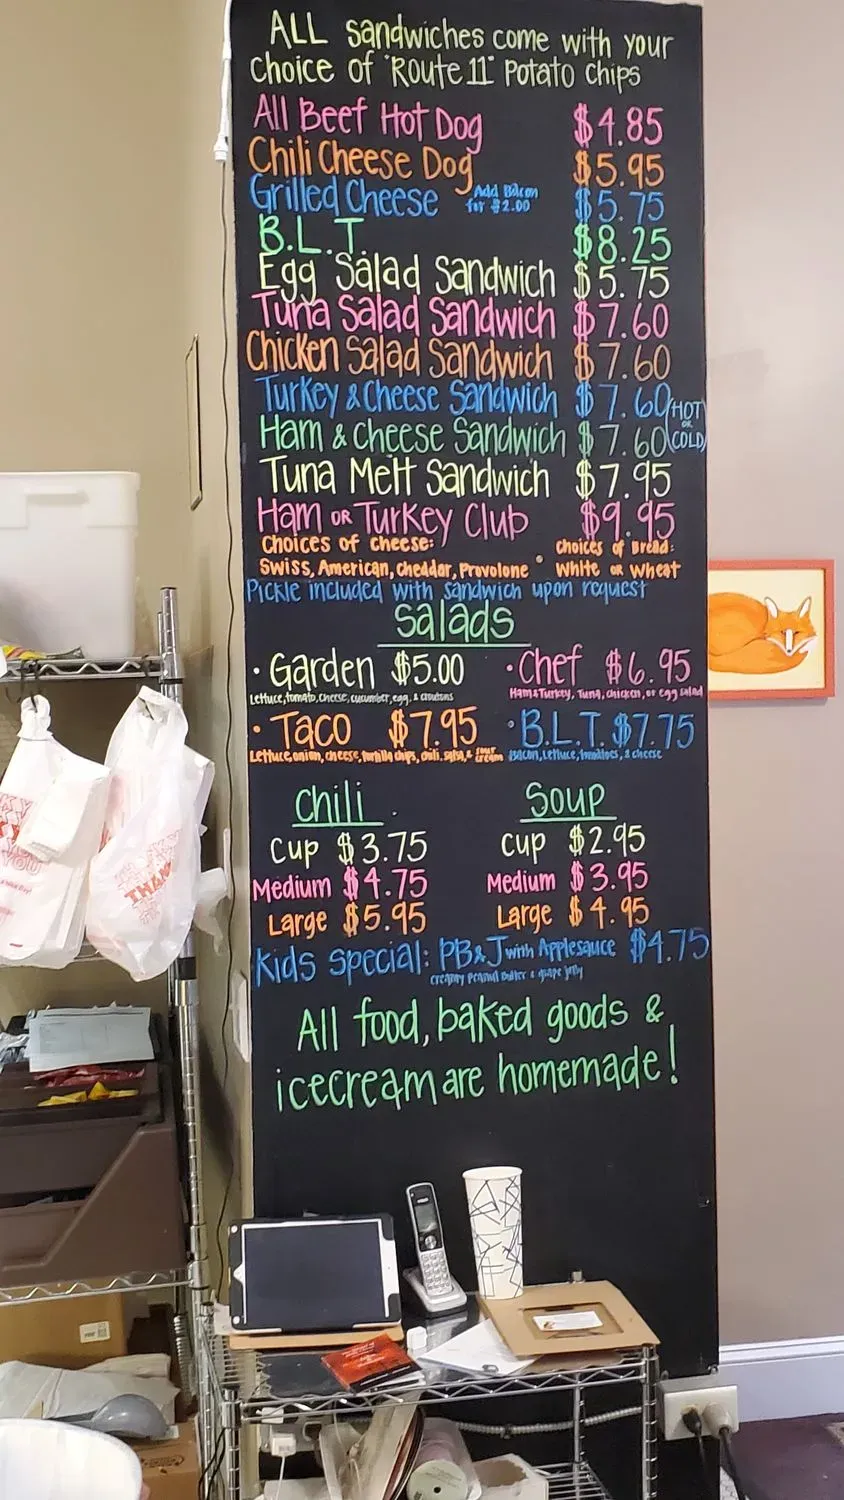 ALL sandwiches come with your
choice of "Route 11" Potato Chips
All Beef Hot Dog $4.85
Chili Cheese Dog $5.95
Grilled Cheese Add Bacon for $2.00 $5.75
B.L.T. $8.25
Egg Salad Sandwich $5.75
Tuna Salad Sandwich $7.60
Chicken Salad Sandwich $7.60
Turkey & Cheese Sandwich $7.60 (HOT
OR
Ham & Cheese Sandwich $7.60 COLD)
Tuna Melt Sandwich $7.95
Ham OR Turkey Club $9.95
Choices of Cheese: Choices of Bread:
Swiss, American, Cheddar, Provolone • White OR Wheat
Pickle included with sandwich upon request
Salads
• Garden $5.00 • Chef $6.95
Lettuce, tomato, cheese, cucumber, egg, & croutons Ham&Turkey, Tuna, Chicken, or Egg Salad
• Taco $7.95 • B.L.T. $7.75
Lettuce, onion, cheese, tortilla chips, chili, salsa, & sour cream Bacon, Lettuce, tomatoes, & cheese
Chili Soup
Cup $3.75 Cup $2.95
Medium $4.75 Medium $3.95
Large $5.95 Large $4.95
Kids Special: PB&J with Applesauce $4.75
creamy Peanut Butter & grape jelly
All food, baked goods &
icecream are homemade!
THANK
YOU